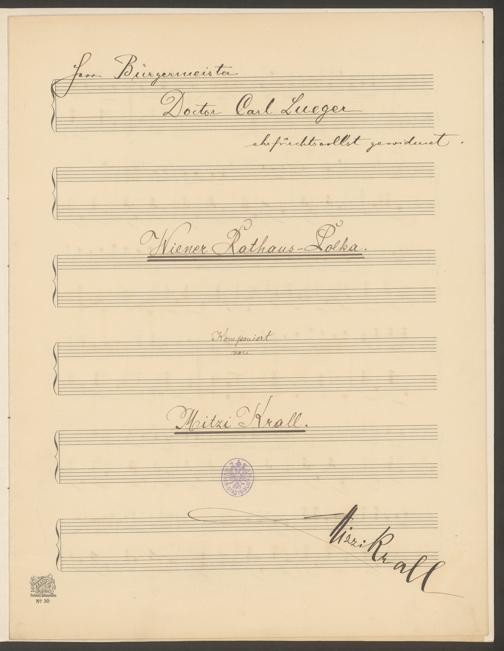 Herrn Bürgermeister
Doctor Carl Lueger
ehrfurchtsvollst gewidmet.
Wiener Rathaus-Polka.
Komponiert
von
Mitzi Krall.
Mizzi Krall
No 10